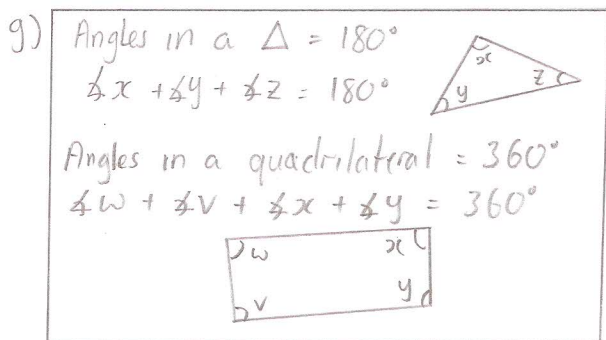 g) Angles in a Δ = 180°
∡x + ∡y + ∡z = 180°
x
z
y
Angles in a quadrilateral = 360°
∡w + ∡v + ∡x + ∡y = 360°
w x
v y